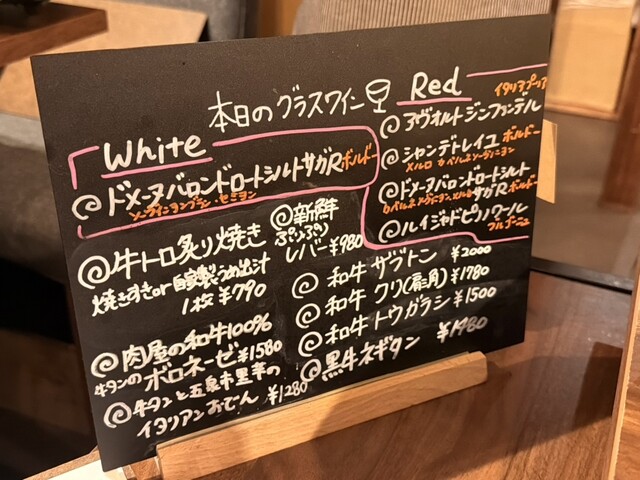 本日のグラスワイン
White
ドメーヌバロンドロートシルトサガR ボルドー
ソーヴィニヨンブラン・セミヨン
Red
イタリアプーリア
アヴォルトジンファンデル
シャンデトレイユ ボルドー
メルロ カベルネソーヴィニヨン
ドメーヌバロンドロートシルト
カベルネソーヴィニヨン メルロ サガR ボルドー
ルイジャドピノノワール
ブルゴーニュ
牛トロ炙り焼き
焼きすきor自家製うめ出汁
1枚 ¥790
新鮮
ぷりぷり
レバー ¥980
肉屋の和牛100%
牛タンのボロネーゼ ¥1580
牛タンと五泉市里芋の
イタリアンおでん ¥1280
和牛 ザブトン ¥2000
和牛 クリ(肩三角) ¥1780
和牛 トウガラシ ¥1500
黒牛ネギタン ¥1980